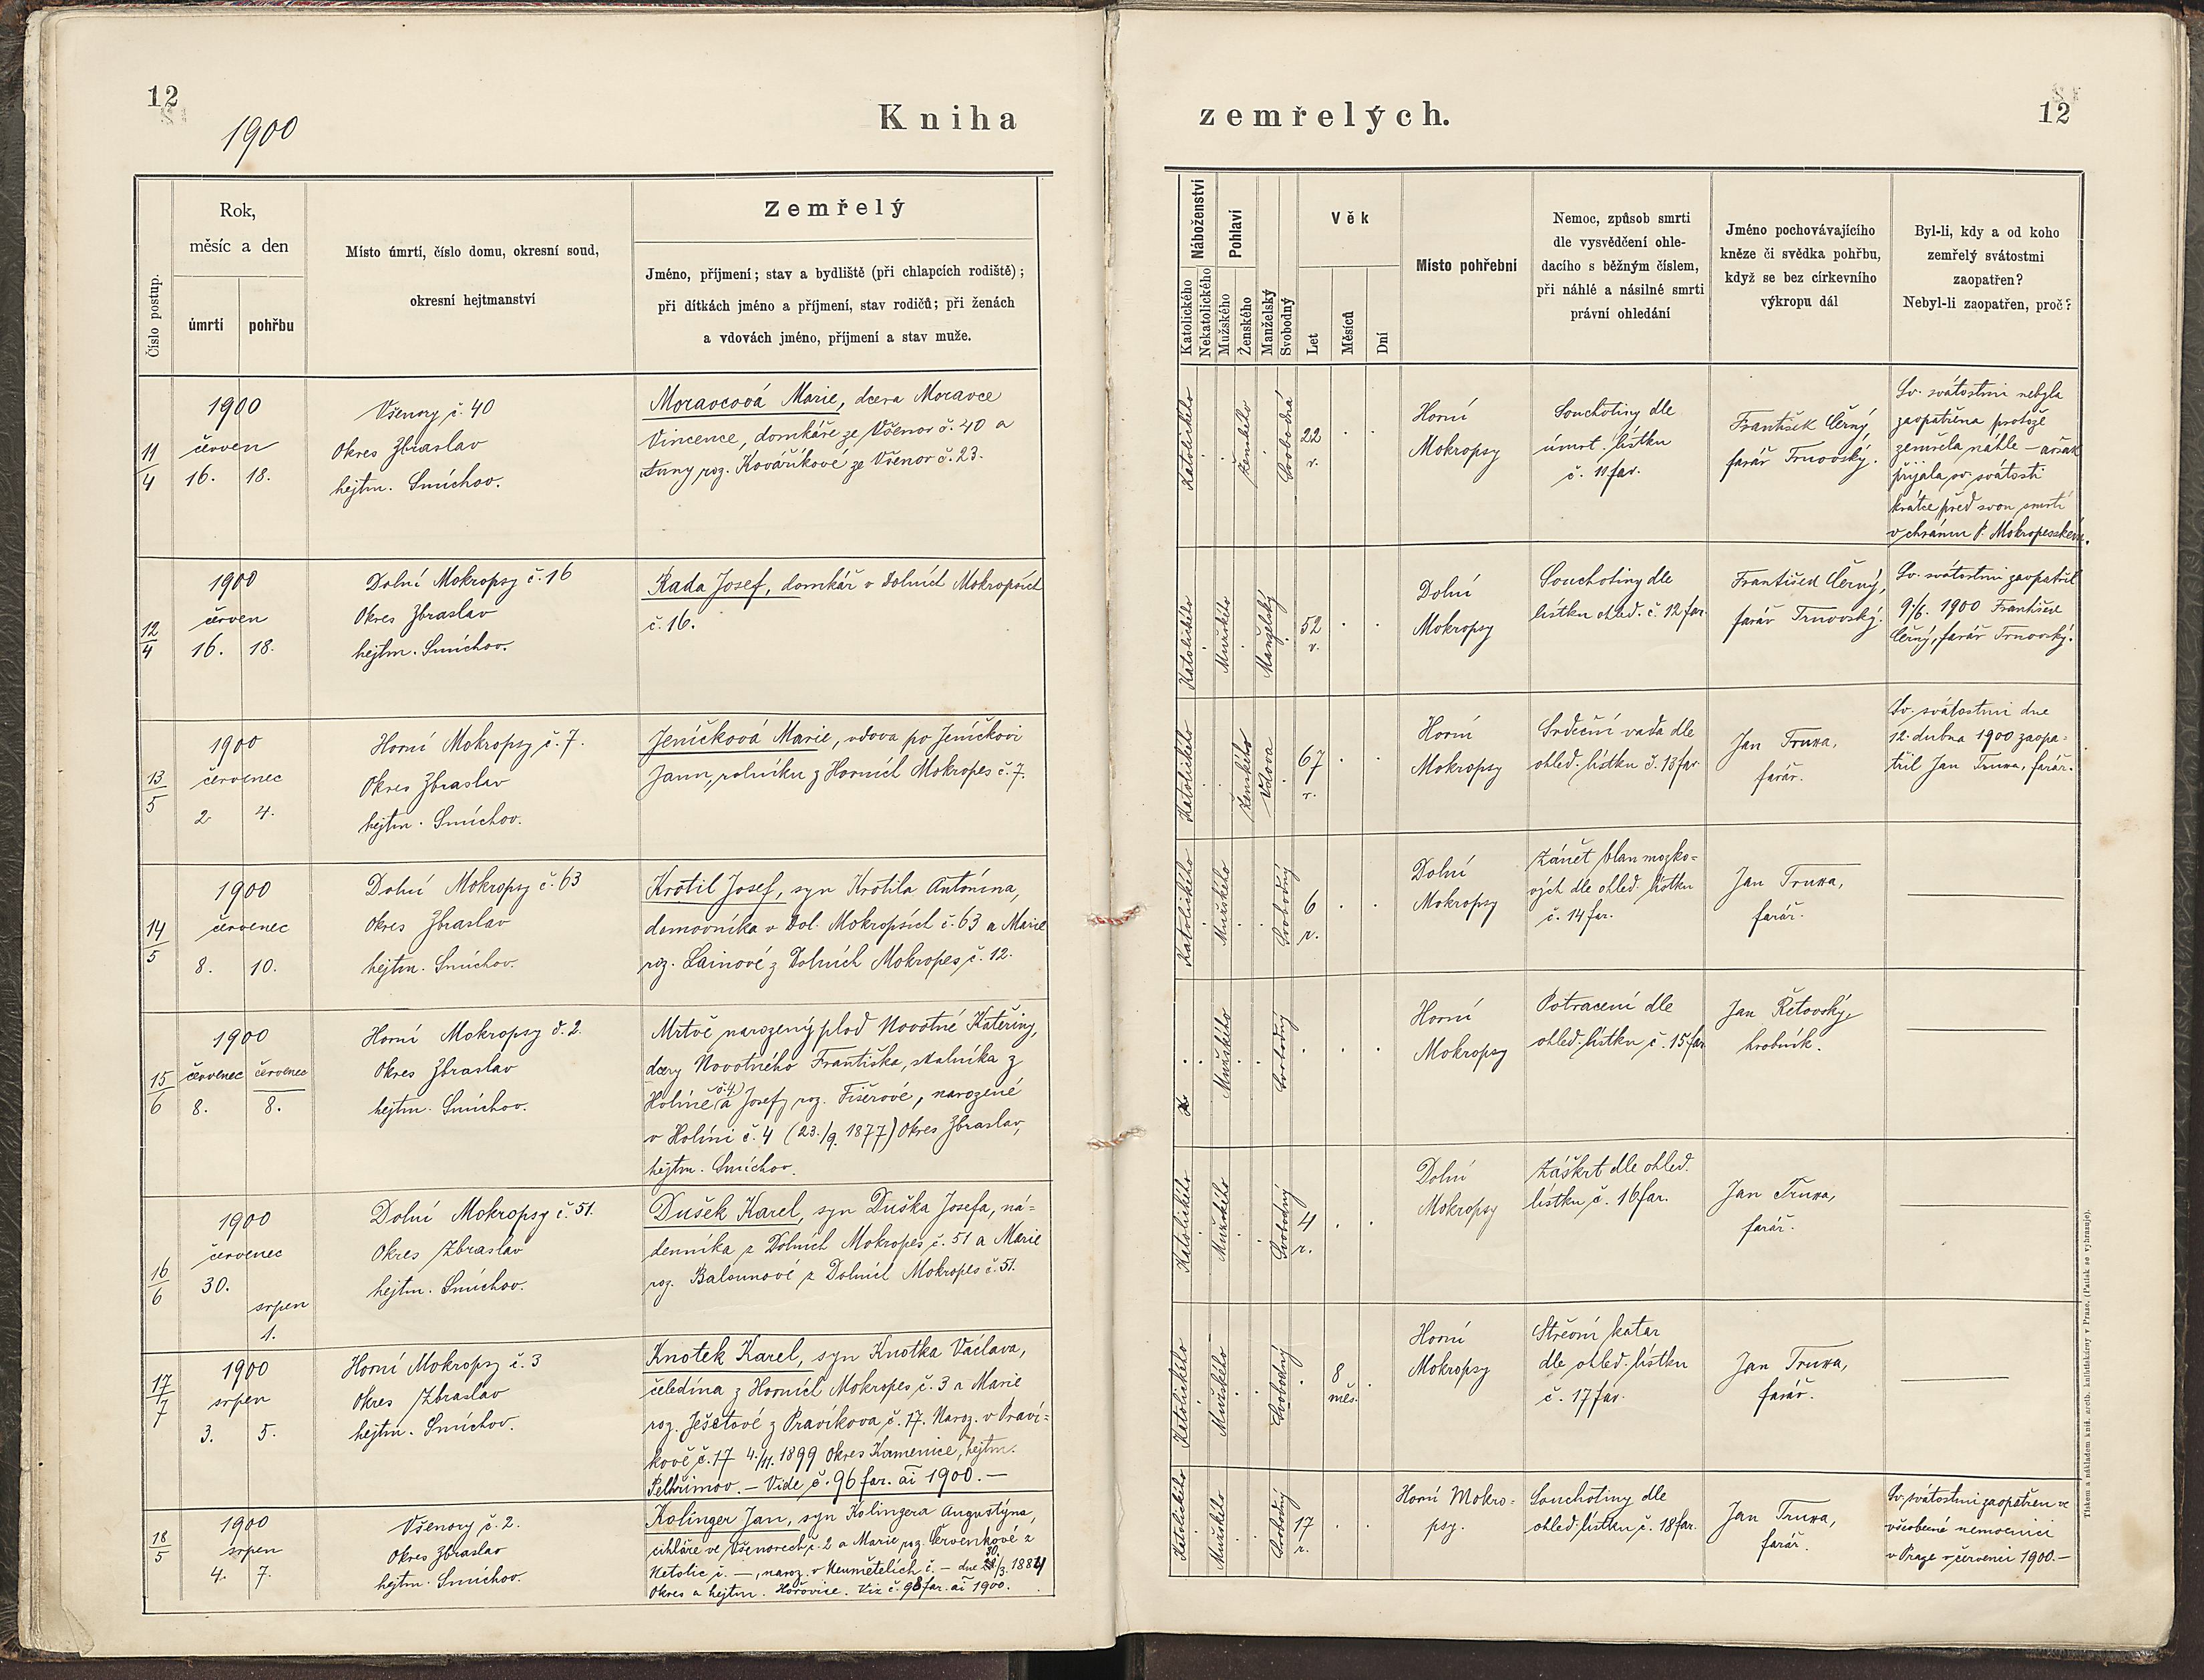 12
1900
Kniha
zemřelých.
12
Číslo postup.
Rok,
měsíc a den
úmrtí
pohřbu
Místo úmrtí, číslo domu, okresní soud,
okresní hejtmanství
Zemřelý
Jméno, příjmení; stav a bydliště (při chlapcích rodiště);
při dítkách jméno a příjmení, stav rodičů; při ženách
a vdovách jméno, příjmení a stav muže.
Náboženství
Katolického
Nekatolického
Pohlaví
Mužského
Ženského
Manželský
Svobodný
Věk
Let
Měsíců
Dní
Místo pohřební
Nemoc, způsob smrti
dle vysvědčení ohle-
dacího s běžným číslem,
při náhlé a násilné smrti
právní ohledání
Jméno pochovávajícího
kněze či svědka pohřbu,
když se bez církevního
výkropu dál
Byl-li, kdy a od koho
zemřelý svátostmi
zaopatřen?
Nebyl-li zaopatřen, proč?
11/4
1900
červen
16. 18.
Všenory č. 40
Okres Zbraslav
hejtm. Smíchov.
Moravcová Marie, dcera Moravce
Vincence, domkáře ze Všenor č. 40 a
Anny roz. Kovaříkové ze Všenor č. 23.
Katolického
Ženského
Svobodná
22
r.
Horní
Mokropsy
Souchotiny dle
úmrt. lístku
č. 11 far.
František Černý
farář Trnovský.
Sv. svátostmi nebyla
zaopatřena protože
zemřela náhle – avšak
přijala sv. svátosti
krátce před svou smrtí
v chrámu P. Mokropesském.
12/4
1900
červen
16. 18.
Dolní Mokropsy č. 16
Okres Zbraslav
hejtm. Smíchov.
Rada Josef, domkář v Dolních Mokropsích
č. 16.
Katolického
Mužského
Manželský
52
r.
Dolní
Mokropsy
Souchotiny dle
lístku ohled. č. 12 far.
František Černý,
farář Trnovský.
Sv. svátostmi zaopatřil
9./6. 1900 František
Černý, farář Trnovský.
13/5
1900
červenec
2. 4.
Horní Mokropsy č. 7.
Okres Zbraslav
hejtm. Smíchov.
Jeníčková Marie, vdova po Jeníčkovi
Janu, rolníku z Horních Mokropes č. 7.
Katolického
Ženského
Vdova
67
r.
Horní
Mokropsy
Srdeční vada dle
ohled. lístku č. 13 far
Jan Truxa,
farář.
Sv. svátostmi dne
12. dubna 1900 zaopa-
třil Jan Truxa, farář.
14/5
1900
červenec
8. 10.
Dolní Mokropsy č. 63
Okres Zbraslav
hejtm. Smíchov.
Krotil Josef, syn Krotila Antonína,
domovníka v Dol. Mokropsích č. 63 a Marie
roz. Lainové z Dolních Mokropes č. 12.
Katolického
Mužského
Svobodný
6
r.
Dolní
Mokropsy
Zánět blan mozko-
vých dle ohled. lístku
č. 14 far.
Jan Truxa,
farář.
15/6
1900
červenec červenec
8. 8.
Horní Mokropsy č. 2.
Okres Zbraslav
hejtm. Smíchov.
Mrtvě narozený plod Novotné Kateřiny,
dcery Novotného Františka, skalníka z
Holině (č. 4) a Josefy roz. Fišerové, narozené
v Holíni č. 4 (23./9. 1877) Okres Zbraslav,
hejtm. Smíchov.
Mužského
Svobodný
Horní
Mokropsy
Potracení dle
ohled. lístku č. 15 far
Jan Řetovský,
hrobník.
16/6
1900
červenec
30.
srpen
1.
Dolní Mokropsy č. 51.
Okres Zbraslav
hejtm. Smíchov.
Dušek Karel, syn Duška Josefa, ná-
denníka z Dolních Mokropes č. 51 a Marie
roz. Balounové z Dolních Mokropes č. 51.
Katolického
Mužského
Svobodný
4
r.
Dolní
Mokropsy
Záškrt dle ohled.
lístku č. 16 far.
Jan Truxa,
farář.
17/7
1900
srpen
3. 5.
Horní Mokropsy č. 3
Okres Zbraslav
hejtm. Smíchov.
Knotek Karel, syn Knotka Václava,
čeledína z Horních Mokropes č. 3 a Marie
roz. Ješetové z Pravíkova č. 17. Naroz. v Praví-
kově č. 17 4./11. 1899 Okres Kamenice, hejtm.
Pelhřimov. – Vide č. 96 far. ai 1900. –
Katolického
Mužského
Svobodný
8
měs.
Horní
Mokropsy
Střevní katar
dle ohled. lístku
č. 17 far.
Jan Truxa,
farář.
18/5
1900
srpen
4. 7.
Všenory č. 2.
Okres Zbraslav
hejtm. Smíchov.
Kolinger Jan, syn Kolingera Augustýna,
cihláře ve Všenorech č. 2 a Marie roz. Červenkové z
Netolic č. –, naroz. v Neumětelích č. – dne 30/3. 1884
Okres a hejtm. Hořovice. Viz č. 98 far. ai 1900.
Katolického
Mužského
Svobodný
17
r.
Horní Mokro-
psy.
Souchotiny dle
ohled. lístku č. 18 far.
Jan Truxa,
farář.
Sv. svátostmi zaopatřen ve
všeobecné nemocnici
v Praze v červenci 1900. –